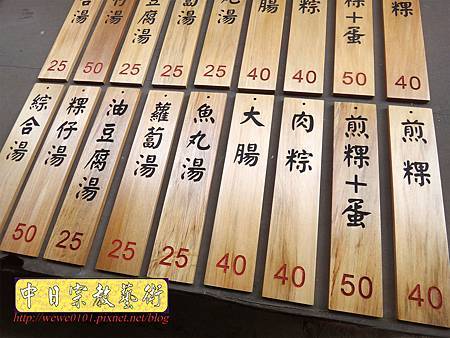 綜合湯 25
粿仔湯 50
油豆腐湯 25
蘿蔔湯 25
魚丸湯 25
大腸 40
肉粽 40
煎粿+蛋 50
煎粿 40
綜合湯 50
粿仔湯 25
油豆腐湯 25
蘿蔔湯 25
魚丸湯 25
大腸 40
肉粽 40
煎粿+蛋 50
煎粿 40
中日宗教藝術
http://wewe0101.pixnet.net/blog